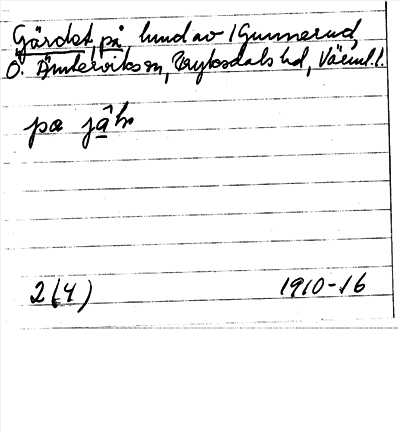 Gärdet, på hmd av 1 Gunnerud,
Ö. Ämterviks sn, Fryksdals hd, Värml. l.
pœ jâ̲ḷə
2(4) 1910-16